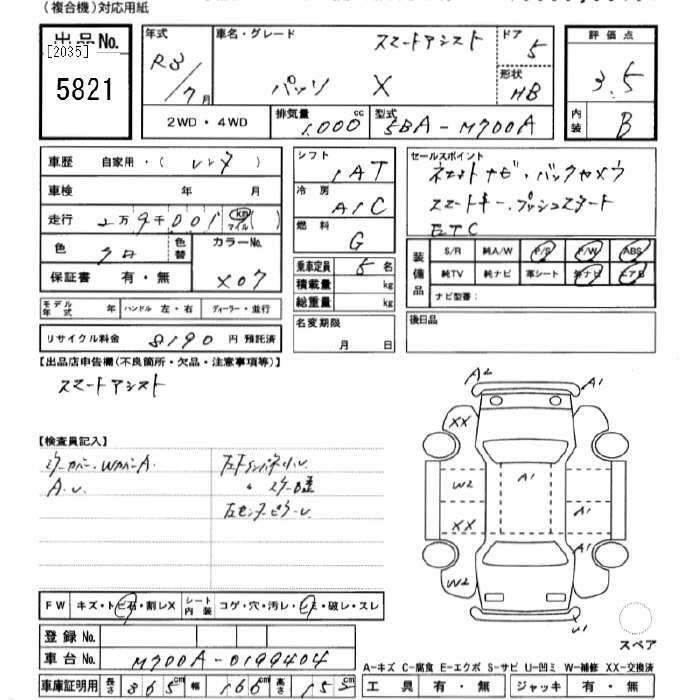 （複合機）対応用紙
出品No.
[2035]
5821
年式
R3/7月
車名・グレード
スマートアシスト
パッソ X
ドア
5
形状
HB
評価点
3.5
内装
B
2WD・4WD
排気量
1,000 cc
型式
5BA-M700A
車歴 自家用・（レンタ）
車検 年 月
走行 2万9千001 km マイル（ ）
色 クロ
色替
カラーNo.
X07
保証書 有・無
モデル年式 年
ハンドル 左・右
ディーラー・並行
リサイクル料金 8190 円 預託済
シフト
IAT
冷房
AIC
燃料
G
乗車定員 5 名
積載量 kg
総重量 kg
名変期限
月 日
セールスポイント
スマートキー．プッシュスタート
ETC
装備品
S/R 純A/W P/S P/W ABS
純TV 純ナビ 革シート 外ナビ エアB
ナビ型番：
後日品
【出品店申告欄(不良箇所・欠品・注意事項等)】
スマートアシスト
【検査員記入】
ミラーカバー．WカバーA．
A．U．
左センターピラーU
FW キズ・トビ石・割レX
シート内装 コゲ・穴・汚レ・シミ・破レ・スレ
登録No.
車台No. M700A-0199404
車庫証明用 長さ 365cm 幅 166cm 高さ 152cm
A2
A1
XX
W2
A1
A1
XX
A1
W2
U1
スペア
A-キズ C-腐食 E-エクボ S-サビ U-凹ミ W-補修 XX-交換済
工具 有・無 ジャッキ 有・無